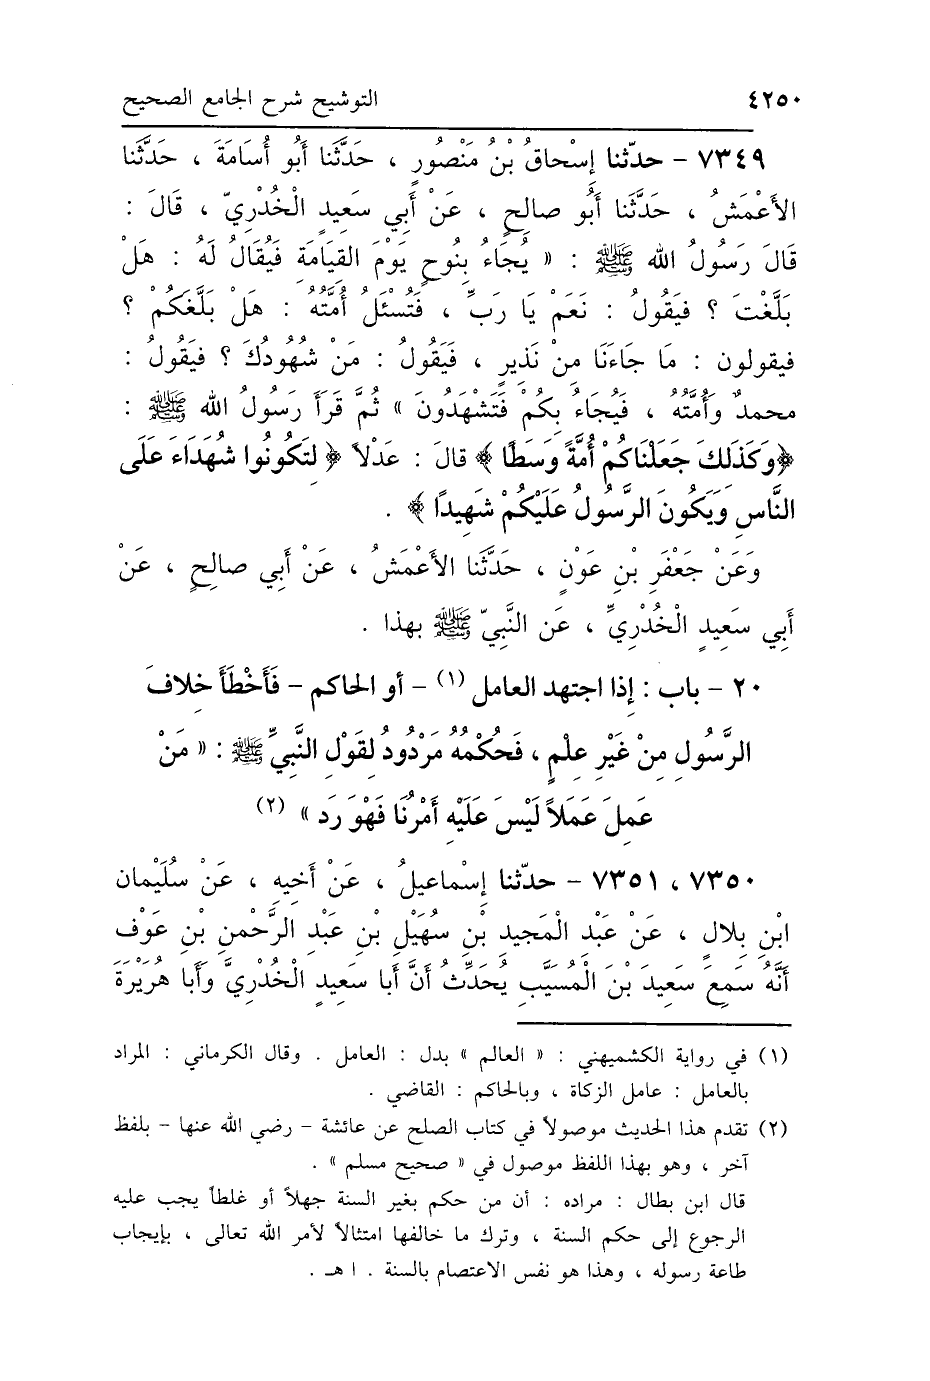 ٤٢٥٠ التوشيح شرح الجامع الصحيح
٧٣٤٩ – حدّثنا إسْحاقُ بْنُ مَنْصُورٍ ، حَدَّثَنا أَبُو أُسَامَةَ ، حَدَّثَنا
الأَعْمَشُ ، حَدَّثَنا أَبُو صالِحٍ ، عَنْ أَبِي سَعِيدٍ الْخُدْرِيّ ، قَالَ :
قَالَ رَسُولُ الله ﷺ : « يُجَاءُ بِنُوحٍ يَوْمَ القِيَامَةِ فَيُقَالُ لَهُ : هَلْ
بَلَّغْتَ ؟ فَيَقُولُ : نَعَمْ يَا رَبِّ ، فَتُسْئَلُ أُمَّتُهُ : هَلْ بَلَّغَكُمْ ؟
فيقولون : مَا جَاءَنَا مِنْ نَذِيرٍ ، فَيَقُولُ : مَنْ شُهُودُكَ ؟ فَيَقُولُ :
محمدٌ وَأُمَّتُهُ ، فَيُجَاءُ بِكُمْ فَتَشْهَدُونَ » ثُمَّ قَرَأَ رَسُولُ الله ﷺ :
﴿وَكَذَلِكَ جَعَلْنَاكُمْ أُمَّةً وَسَطًا ﴾ قالَ : عَدْلاً ﴿ لِتَكُونُوا شُهَدَاءَ عَلَى
النَّاسِ وَيَكُونَ الرَّسُولُ عَلَيْكُمْ شَهِيدًا ﴾ .
وَعَنْ جَعْفَرِ بْنِ عَوْنٍ ، حَدَّثَنَا الأَعْمَشُ ، عَنْ أَبِي صالِحٍ ، عَنْ
أَبِي سَعِيدٍ الْخُدْرِيِّ ، عَنِ النَّبِيّ ﷺ بِهذا .
٢٠ – باب : إذا اجتهد العامل (١) – أو الحاكم – فَأَخْطَأَ خِلافَ
الرَّسُولِ مِنْ غَيْرِ عِلْمٍ ، فَحُكْمُهُ مَرْدُودٌ لِقَوْلِ النَّبِيِّ ﷺ : « مَنْ
عَمِلَ عَمَلاً لَيْسَ عَلَيْهِ أَمْرُنَا فَهْوَ رَد » (٢)
٧٣٥٠ ، ٧٣٥١ – حدّثنا إسْماعيلُ ، عَنْ أخيهِ ، عَنْ سُلَيْمان
ابْنِ بِلالٍ ، عَنْ عَبْدِ الْمَجيدِ بْنِ سُهَيْلِ بْنِ عَبْدِ الرَّحْمنِ بْنِ عَوْف
أَنَّهُ سَمِعَ سَعِيدَ بْنَ الْمُسَيَّبِ يُحَدِّثُ أَنَّ أبا سَعِيدٍ الْخُدْرِيَّ وَأَبا هُرَيْرَةَ
(١) في رواية الكشميهني : « العالم » بدل : العامل . وقال الكرماني : المراد
بالعامل : عامل الزكاة ، وبالحاكم : القاضي .
(٢) تقدم هذا الحديث موصولاً في كتاب الصلح عن عائشة – رضي الله عنها – بلفظ
آخر ، وهو بهذا اللفظ موصول في « صحيح مسلم » .
قال ابن بطال : مراده : أن من حكم بغير السنة جهلاً أو غلطاً يجب عليه
الرجوع إلى حكم السنة ، وترك ما خالفها امتثالاً لأمر الله تعالى ، بإيجاب
طاعة رسوله ، وهذا هو نفس الاعتصام بالسنة . ا هـ .